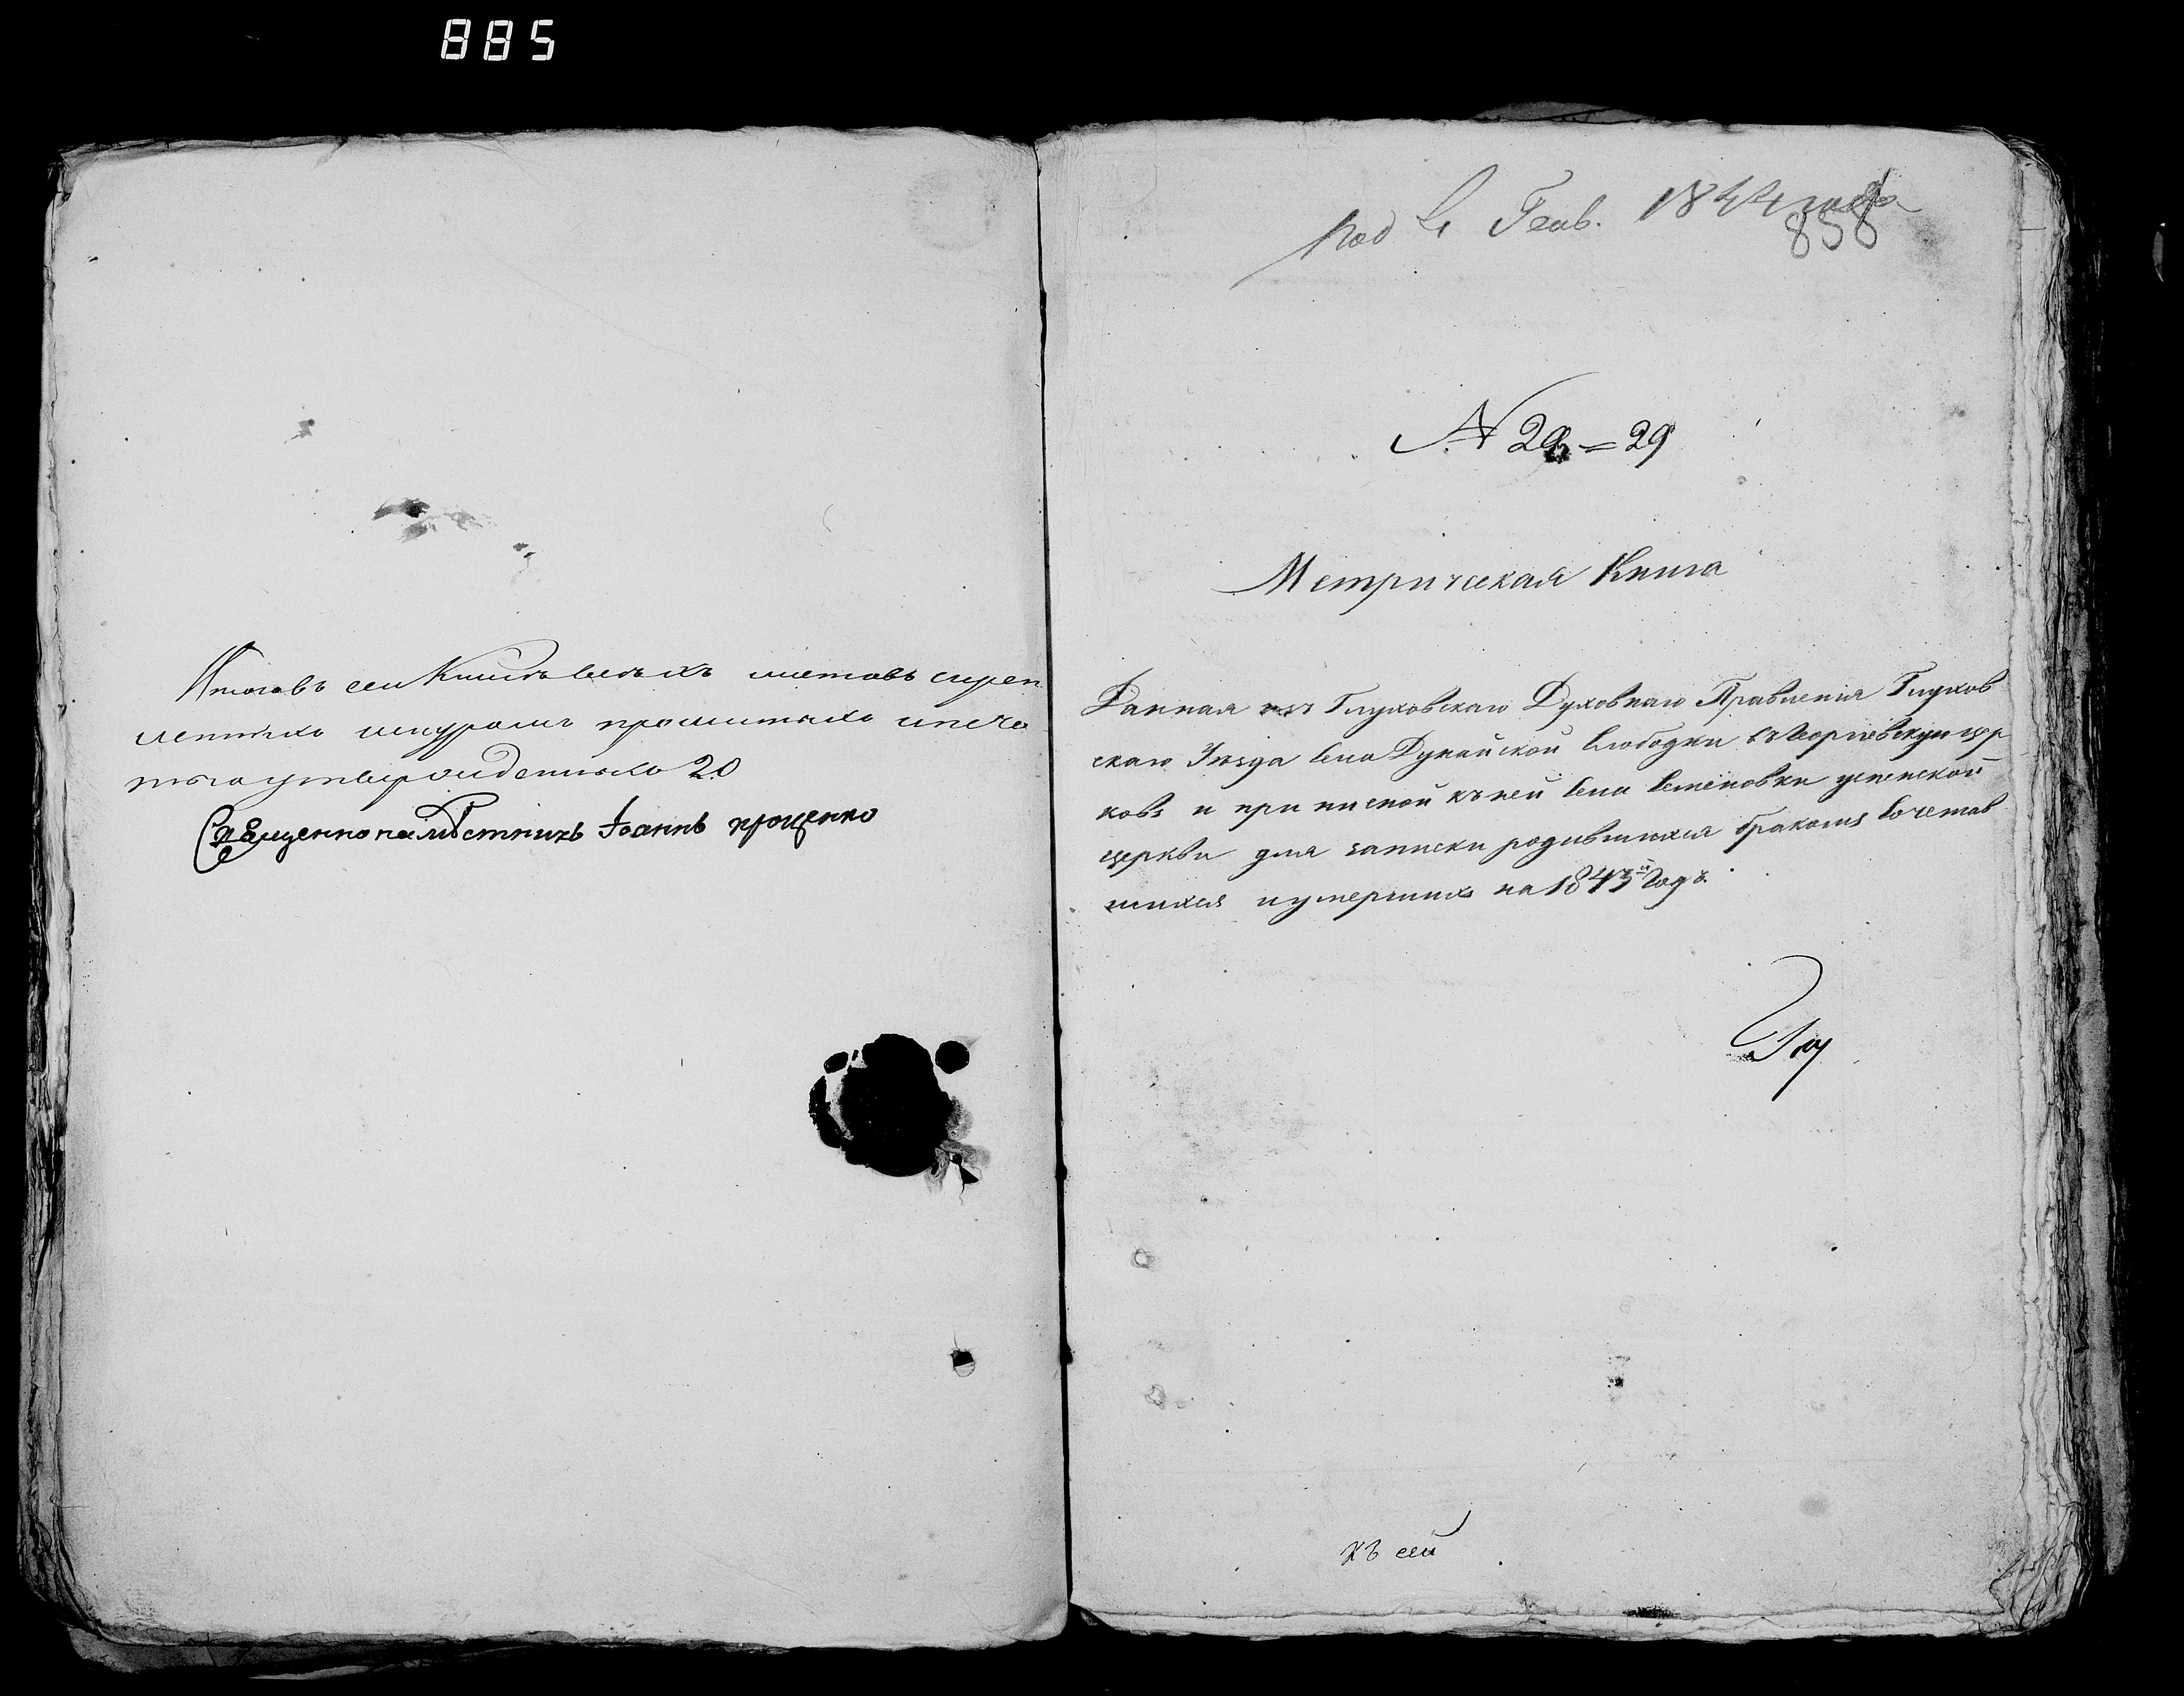 885
Итого въ сей Книгѣ всѣхъ листовъ скреп
ленныхъ шнуромъ прошитыхъ и печа
тью утвержденныхъ 20
Священнонаместникъ Іоаннъ проценко
Под 4 Генв. 1844 года
858
N 29 = 29
Метрическая Книга
Данная изъ Глуховскаго Духовнаго Правленія Глухов
скаго Уѣзда села Дунайской Слободки въ Георгіевскую цер
ковь и приписной къ ней села Степановки успенской
церкви для записки родившихся бракомъ сочетав
шихся и умершихъ на 1843й Годъ.
Глу
къ сей